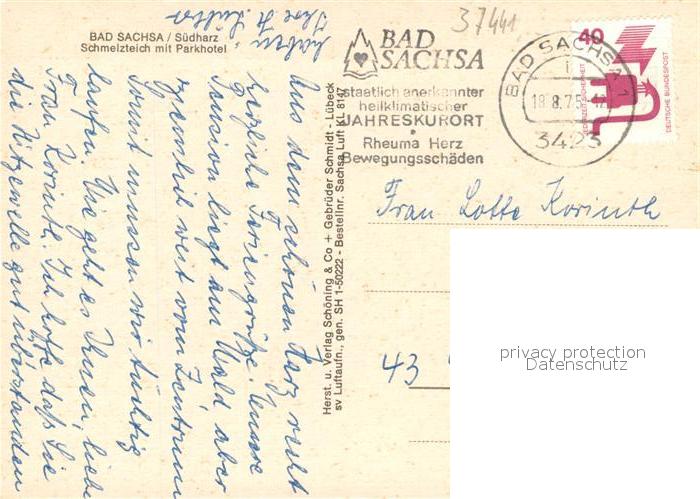 BAD SACHSA / Südharz
Schmelzteich mit Parkhotel
37441
BAD
SACHSA
staatlich anerkannter
heilklimatischer
JAHRESKURORT
Rheuma Herz
Bewegungsschäden
BAD SACHSA 1
18.8.75
3423
40
JEDERZEIT SICHERHEIT
DEUTSCHE BUNDESPOST
Frau Lotte Korinth
43
privacy protection
Datenschutz
Herst. u. Verlag Schöning & Co + Gebrüder Schmidt - Lübeck
sv Luftaufn., gen. SH 1-50222 - Bestellnr. Sachsa Luft KL 8147
Aus dem schönen Harz recht
herzliche Feriengrüße. Unsere
Pension liegt am Wald aber
ziemlich weit vom Zentrum
somit müssen wir tüchtig
laufen. Wie geht es Ihnen, liebe
Frau Korinth. Ich hoffe daß Sie
die Hitzewelle gut überstanden
haben.
Ihre